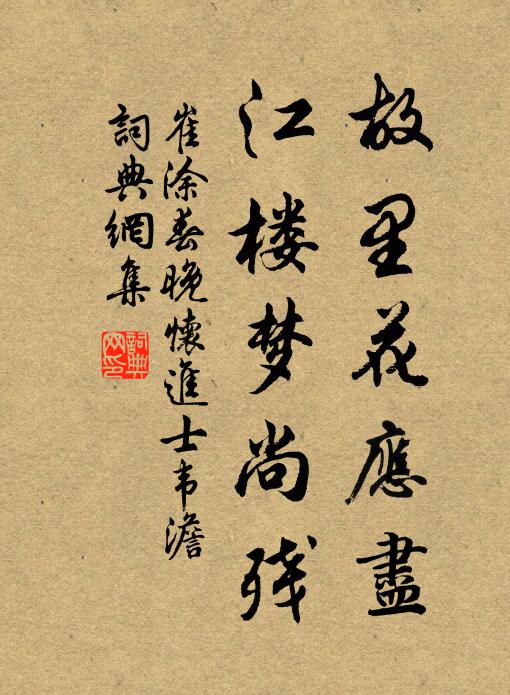 故里花應盡
江楼梦尚残
崔涂春晚懷進士韦澹
詞典網集
詞典网印